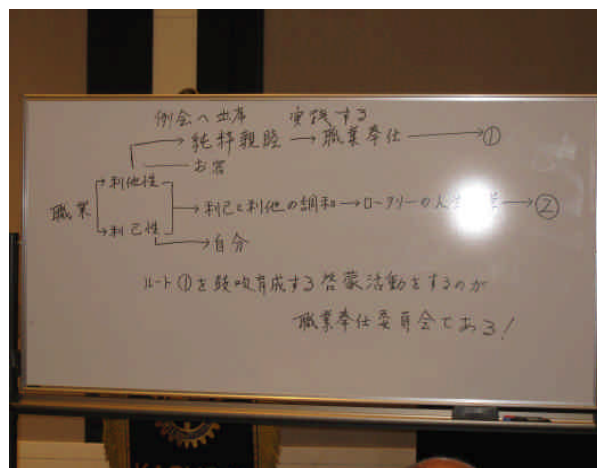 例会へ出席 実践する
純粋親睦→職業奉仕→①
お客
職業
利他性
利己と利他の調和→ロータリーの人生
→②
利己性
自分
ルート①を鼓吹育成する啓蒙活動をするのが
職業奉仕委員会である!